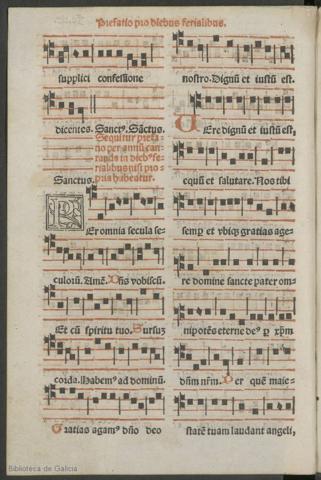 Prefatio pro diebus ferialibus.
supplici confessione
dicentes. Sanctꝰ. Sāctus.
Sequitur prefa-
tio per annū can-
tanda in diebꝰ fe-
rialibus nisi pro-
pria habeatur.
Sanctus.
PEr omnia secula se-
culorū. Amē. Dn̄s vobiscū.
Et cū spiritu tuo. Sursuꝫ
corda. Habemꝰ ad dominū.
Gratias agamꝰ dn̄o deo
nostro. Dignū et iustū est.
VEre dignū et iustū est,
equū et salutare. Nos tibi
semꝑ et vbiqꝫ gratias age-
re domine sancte pater om-
nipotēs eterne deꝰ ꝑ xp̄m
dn̄m nr̄m. Per quē maie-
statē tuam laudant angeli,
Biblioteca de Galicia